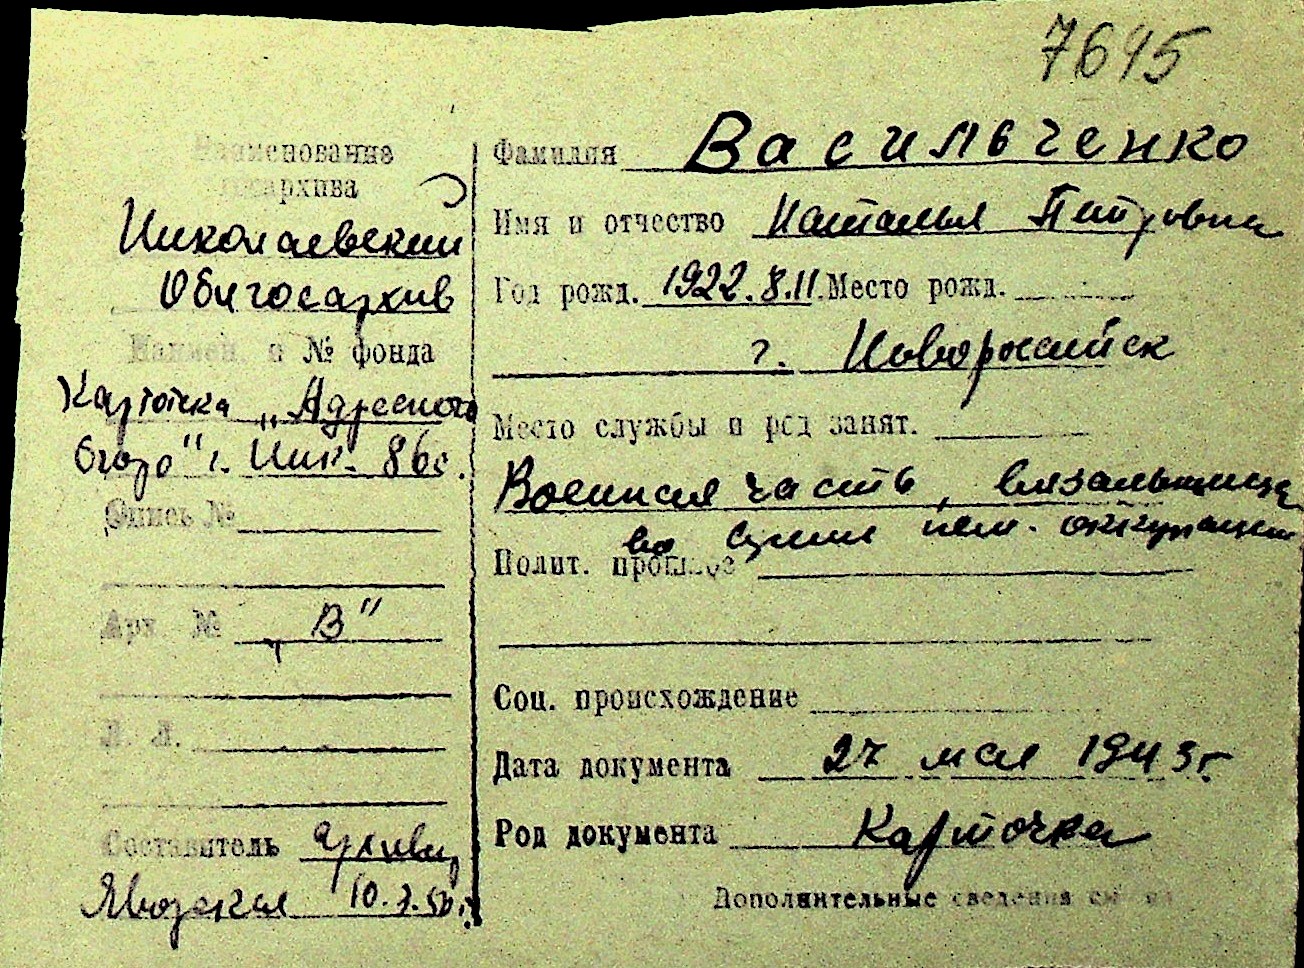 7695
Наименование
госархива
Николаевский
Облгосархив
Наимен. и № фонда
Картотека „Адресного
бюро" г. Ник.
Опись №
Арх. № „В"
Л. Л.
Составитель
10.7.56 г.
Фамилия Васильченко
Имя и отчество Наталья Петровна
Год рожд. 1922.8.II. Место рожд.
г. Новороссийск
Место службы и род занят.
Военная часть, вязальщица
во время нем. оккупации
Полит. прошлое
Соц. происхождение
Дата документа 27 мая 1943 г.
Род документа Карточка
Дополнительные сведения см. на